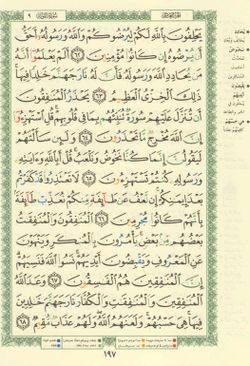 يَحْلِفُونَ بِاللَّهِ لَكُمْ لِيُرْضُوكُمْ وَاللَّهُ وَرَسُولُهُ أَحَقُّ
أَنْ يُرْضُوهُ إِنْ كَانُوا مُؤْمِنِينَ ﴿٦٢﴾ أَلَمْ يَعْلَمُوا أَنَّهُ
مَنْ يُحَادِدِ اللَّهَ وَرَسُولَهُ فَأَنَّ لَهُ نَارَ جَهَنَّمَ خَالِدًا فِيهَا
ذَلِكَ الْخِزْيُ الْعَظِيمُ ﴿٦٣﴾ يَحْذَرُ الْمُنَافِقُونَ
أَنْ تُنَزَّلَ عَلَيْهِمْ سُورَةٌ تُنَبِّئُهُمْ بِمَا فِي قُلُوبِهِمْ قُلِ اسْتَهْزِءُوا
إِنَّ اللَّهَ مُخْرِجٌ مَا تَحْذَرُونَ ﴿٦٤﴾ وَلَئِنْ سَأَلْتَهُمْ
لَيَقُولُنَّ إِنَّمَا كُنَّا نَخُوضُ وَنَلْعَبُ قُلْ أَبِاللَّهِ وَآيَاتِهِ
وَرَسُولِهِ كُنْتُمْ تَسْتَهْزِءُونَ ﴿٦٥﴾ لَا تَعْتَذِرُوا قَدْ كَفَرْتُمْ
بَعْدَ إِيمَانِكُمْ إِنْ نَعْفُ عَنْ طَائِفَةٍ مِنْكُمْ نُعَذِّبْ طَائِفَةً
بِأَنَّهُمْ كَانُوا مُجْرِمِينَ ﴿٦٦﴾ الْمُنَافِقُونَ وَالْمُنَافِقَاتُ
بَعْضُهُمْ مِنْ بَعْضٍ يَأْمُرُونَ بِالْمُنْكَرِ وَيَنْهَوْنَ
عَنِ الْمَعْرُوفِ وَيَقْبِضُونَ أَيْدِيَهُمْ نَسُوا اللَّهَ فَنَسِيَهُمْ
إِنَّ الْمُنَافِقِينَ هُمُ الْفَاسِقُونَ ﴿٦٧﴾ وَعَدَ اللَّهُ
الْمُنَافِقِينَ وَالْمُنَافِقَاتِ وَالْكُفَّارَ نَارَ جَهَنَّمَ خَالِدِينَ
فِيهَا هِيَ حَسْبُهُمْ وَلَعَنَهُمُ اللَّهُ وَلَهُمْ عَذَابٌ مُقِيمٌ ﴿٦٨﴾
١٩٧